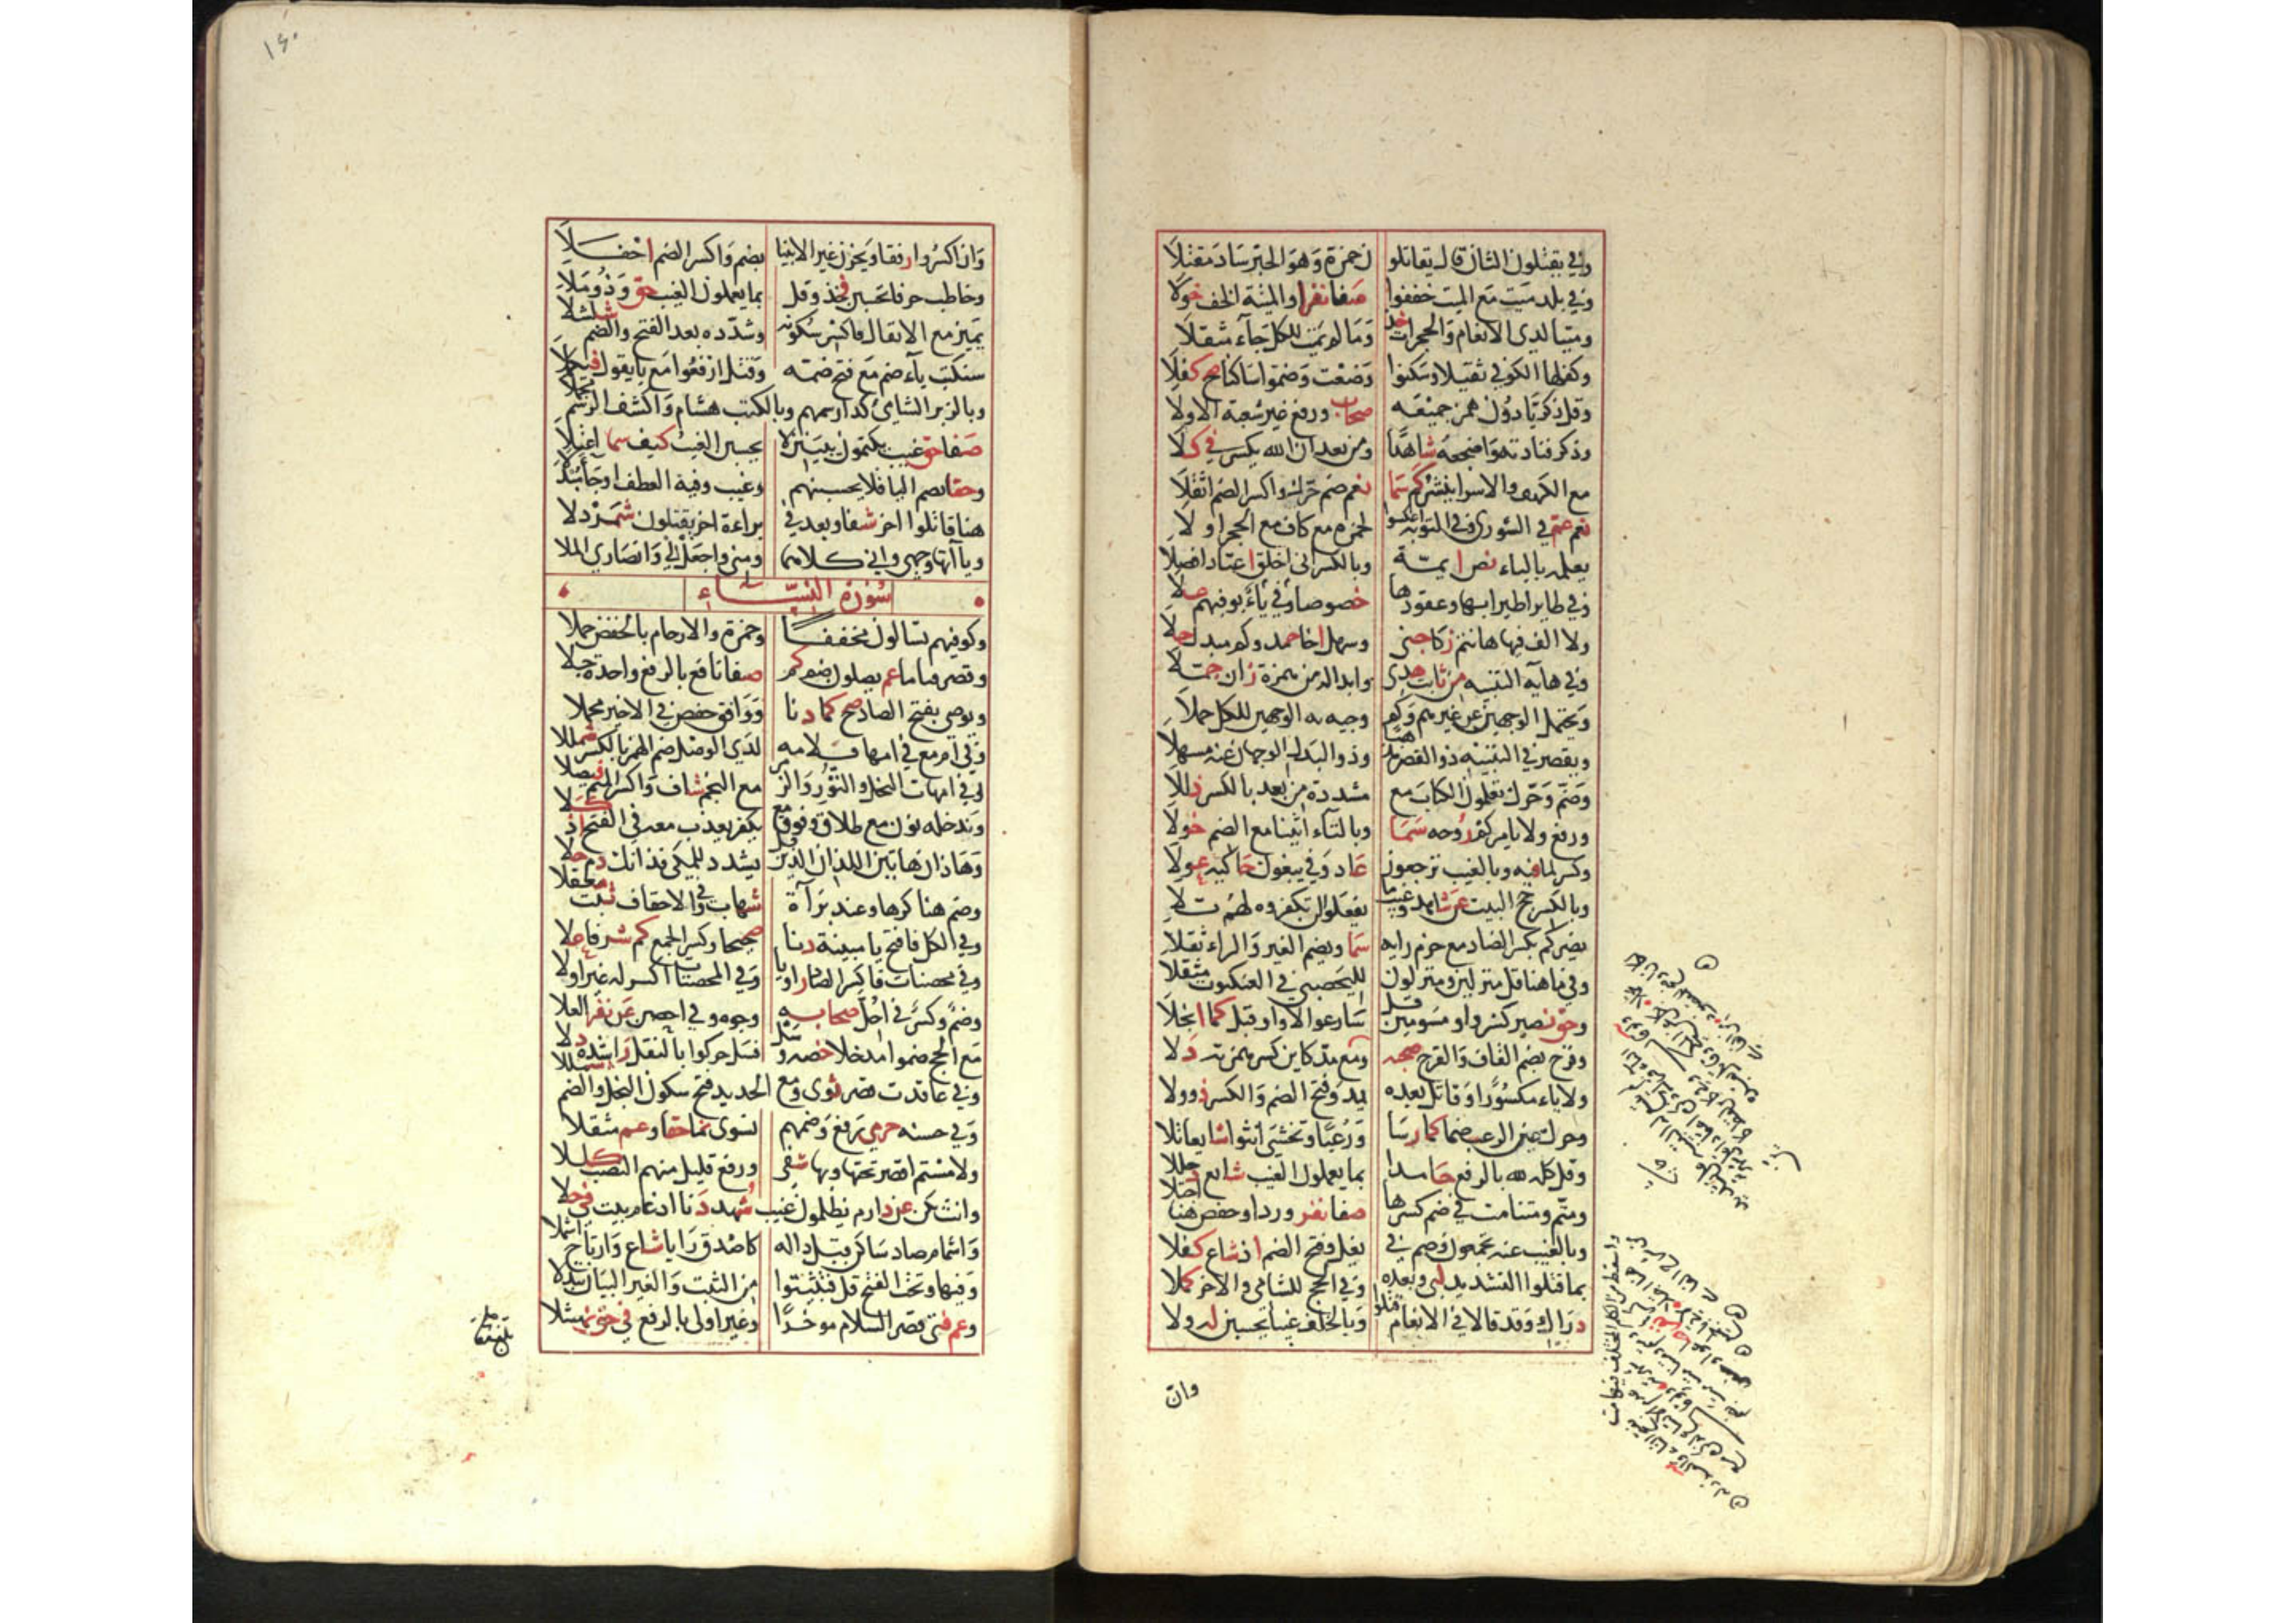 وفي يقتلون الثان قال يقاتلو ن حمزة وهو الحبر ساد مقتلا
وفي بلد ميت مع الميت خففوا صفا نفرا والميتة الخف خولا
وميتا لدى الانعام والحجرات خذ وما لم يمت للكل جاء مثقلا
وكفلها الكوفي ثقيلا وسكنوا وضعت وضموا ساكنا صح كفلا
وقل زكريا دون همز جميعه صحاب ورفع غير شعبة الاولا
وذكر فناداه واضجعه شاهدا ومن بعد ان الله يكسر في كلا
مع الكهف والاسرا يبشر كم سما نعم ضم حرك واكسر الضم اثقلا
نعم عم في الشورى وفي التوبة اعكسوا لحمزة مع كاف مع الحجر اولا
يعلمه بالياء نص ايمة وبالكسر اني اخلق اعتاد افصلا
وفي طايرا طيرا بها وعقودها خصوصا وفي ياء يوفيهم علا
ولا الف فيها هانتم زكا جنى وسهل اخا حمد وكم مبدل جلا
وفي هايه التنبيه من ثابت هدى وابداله من همزة زان جملا
ويحتمل الوجهين عن غيرهم وكم وجيه به الوجهين للكل حملا
ويقصر في التنبيه ذو القصر مذهبا وذو البدل الوجهان عنه مسهلا
وضم وحرك تعلمون الكتاب مع مشددة من بعد بالكسر ذللا
ورفع ولا يامركم روحه سما وبالتاء اتينا مع الضم خولا
وكسر لما فيه وبالغيب ترجعون عاد وفي يبغون حاكيه عولا
وبالكسر حج البيت عن شاهد وغيب ما يفعلوا لن تكفروه لهم تلا
يضركم بكسر الضاد مع جزم رايه سما ويضم الغير والراء ثقلا
وفي ما هنا قل منزلين ومنزلون لليحصبي في العنكبوت مثقلا
وحق نصير كسر واو مسومين قل سارعوا لا واو قبل كما انجلا
وقرح بضم القاف والقرح صحبة ومع مد كاين كسر همزته دلا
ولا ياء مكسورا وقاتل بعده يمد وفتح الضم والكسر ذو ولا
وحرك عين الرعب ضما كما رسا ورعبا وتغشى انثوا شايعا تلا
وقل كله لله بالرفع حامدا بما يعملون الغيب شايع دخللا
ومتم ومتنا مت في ضم كسرها صفا نفر وردا وحفص هنا اجتلا
وبالغيب عنه تجمعون وضم في يغل وفتح الضم اذ شاع كفلا
بما قتلوا التشديد لبى وبعده وفي الحج للشامي والاخر كملا
دراك وقد قالا في الانعام قتلوا وبالخلف غيبا يحسبن له ولا
وان
وان اكسروا رفقا ويحزن غير الانبيا بضم واكسر الضم احفلا
وخاطب حرفا تحسبن فخذ وقل بما يعملون الغيب حق وذو ملا
يميز مع الانفال فاكسر سكونه وشدده بعد الفتح والضم شلشلا
سنكتب ياء ضم مع فتح ضمه وقتل ارفعوا مع يا يقول فيكملا
وبالزبر الشامي كذا رسمهم وبالكتب هشام واكشف الرسم مجملا
صفا حق غيب يكتمون يبيننه لا يحسبن الغيب كيف سما اعتلا
وحقا بضم البا فلا يحسبنهم وغيب وفيه العطف او جا مبدلا
هنا قاتلوا اخر شفا وبعد في براءة اخر يقتلون شمردلا
وياآتها وجهي واني كلاهما ومني واجعل لي وانصاري الملا
سورة النساء
وكوفيهم تسالون مخففا وحمزة والارحام بالخفض جملا
وقصر قياما عم يصلون ضم كم صفا نافع بالرفع واحدة جلا
ويوصي بفتح الصاد صح كما دنا ووافق حفص في الاخير مجملا
وفي ام مع في امها فلامه لدى الوصل ضم الهمز بالكسر شمللا
وفي امهات النحل والنور والزمر مع النجم شاف واكسر الميم فيصلا
وندخله نون مع طلاق وفوق مع يكفر يعذب معه في الفتح اذ كلا
وهاذان هاتين اللذان الذين قل يشدد للمكي فذانك دم حلا
وضم هنا كرها وعند براءة شهاب وفي الاحقاف ثبت معقلا
وفي الكل فافتح يا مبينة دنا صحيحا وكسر الجمع كم شرفا علا
وفي محصنات فاكسر الصاد راويا وفي المحصنات اكسر له غير اولا
وضم وكسر في احل صحابه وجوه وفي احصن عن نفر العلا
مع الحج ضموا مدخلا خصه وسل فسل حركوا بالنقل راشده دلا
وفي عاقدت قصر ثوى ومع الحديد فتح سكون البخل والضم شمللا
وفي حسنه حرمي رفع وضمهم تسوى نما حقا وعم مثقلا
ولامستم اقصر تحتها وبها شفى ورفع قليل منهم النصب كللا
وانث يكن عن دارم تظلمون غيب شهد دنا ادغام بيت في حلا
واشمام صاد ساكن قبل داله كاصدق زايا شاع وارتاح اشملا
وفيها وتحت الفتح قل فتثبتوا من الثبت والغير البيان تبدلا
وعم فتى قصر السلام موخرا وغير اولي بالرفع في حق نهشلا